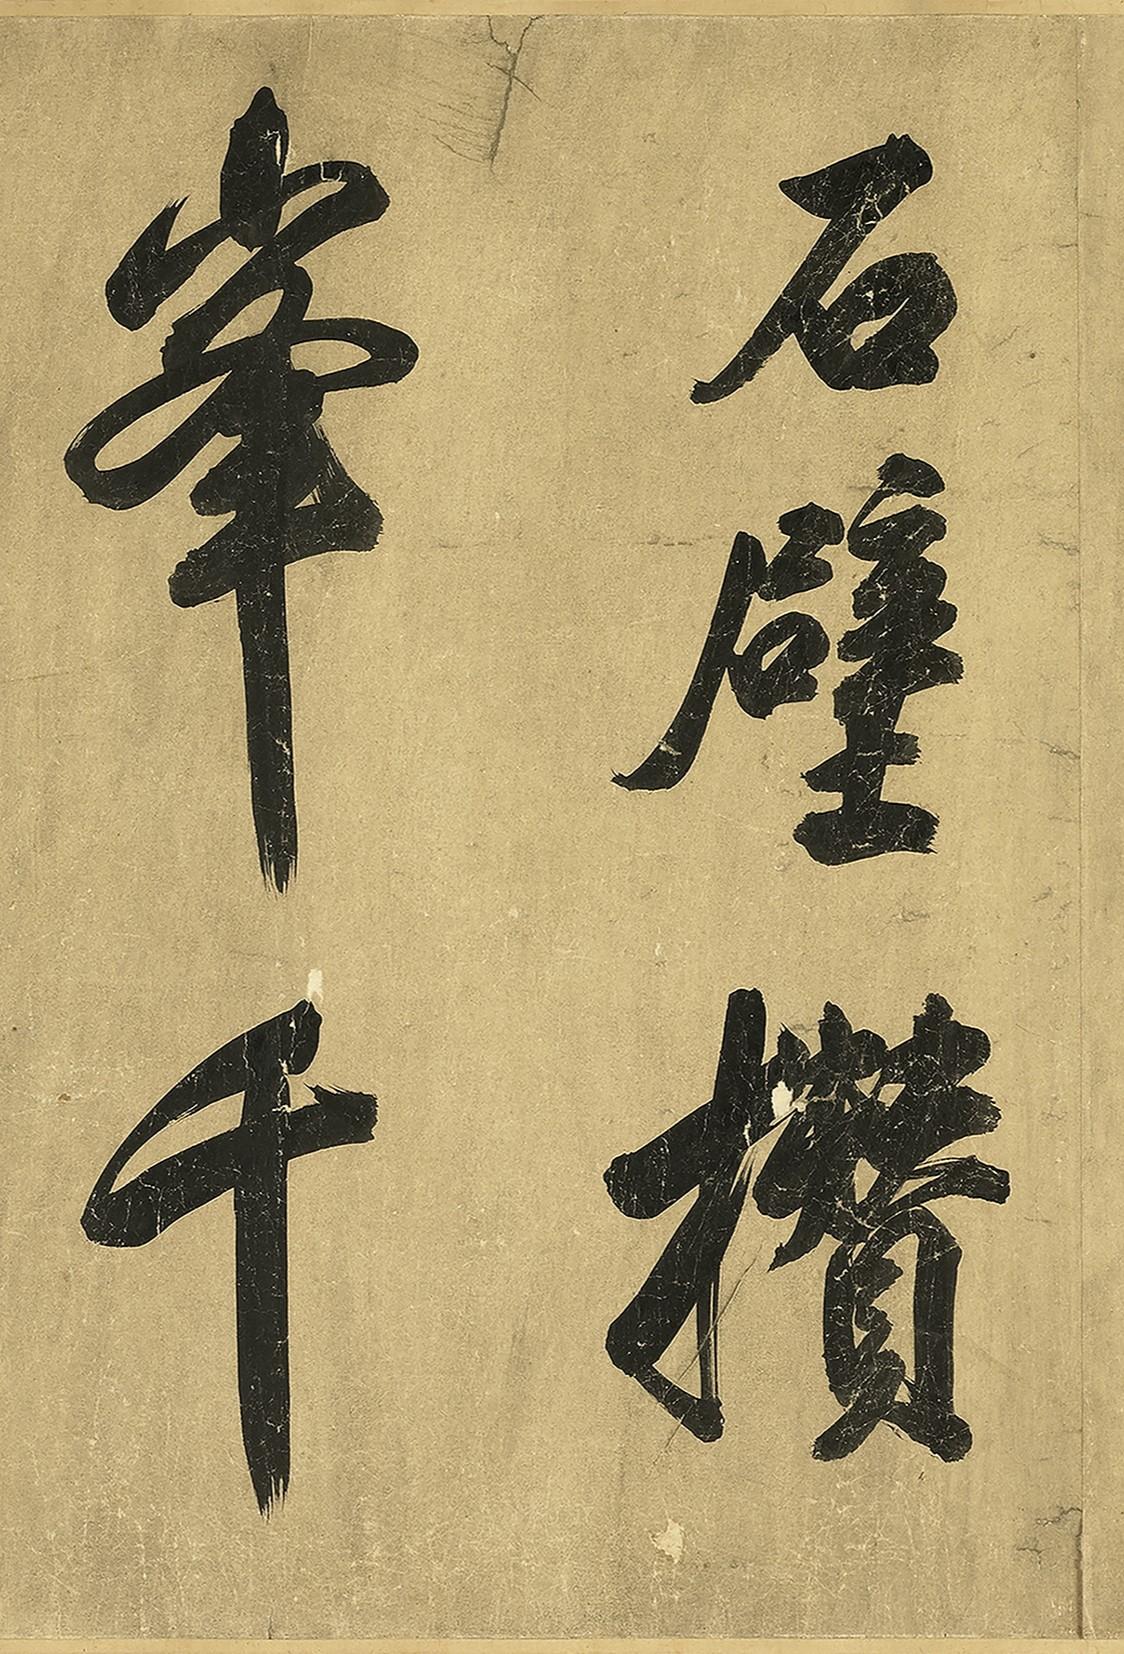 石壁攢
峯千